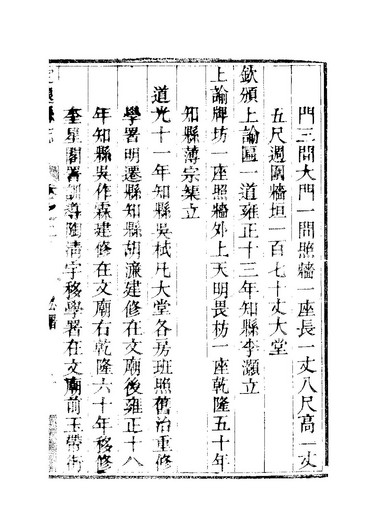 門三間大門一間照牆一座長一丈八尺高一丈
五尺週圍牆垣一百七十丈大堂
欽頒上諭匾一道雍正十三年知縣李灝立
上諭牌坊一座照牆外上天明畏枋一座乾隆五十年
知縣薄宗棐立
道光十一年知縣吳栻凡大堂各房班照舊治重修
學署明遷縣知縣胡濂建修在文廟後雍正十八
年知縣吳作霖建修在文廟右乾隆六十年移修
奎星閣署訓導陶清宇移學署在文廟前玉帶街